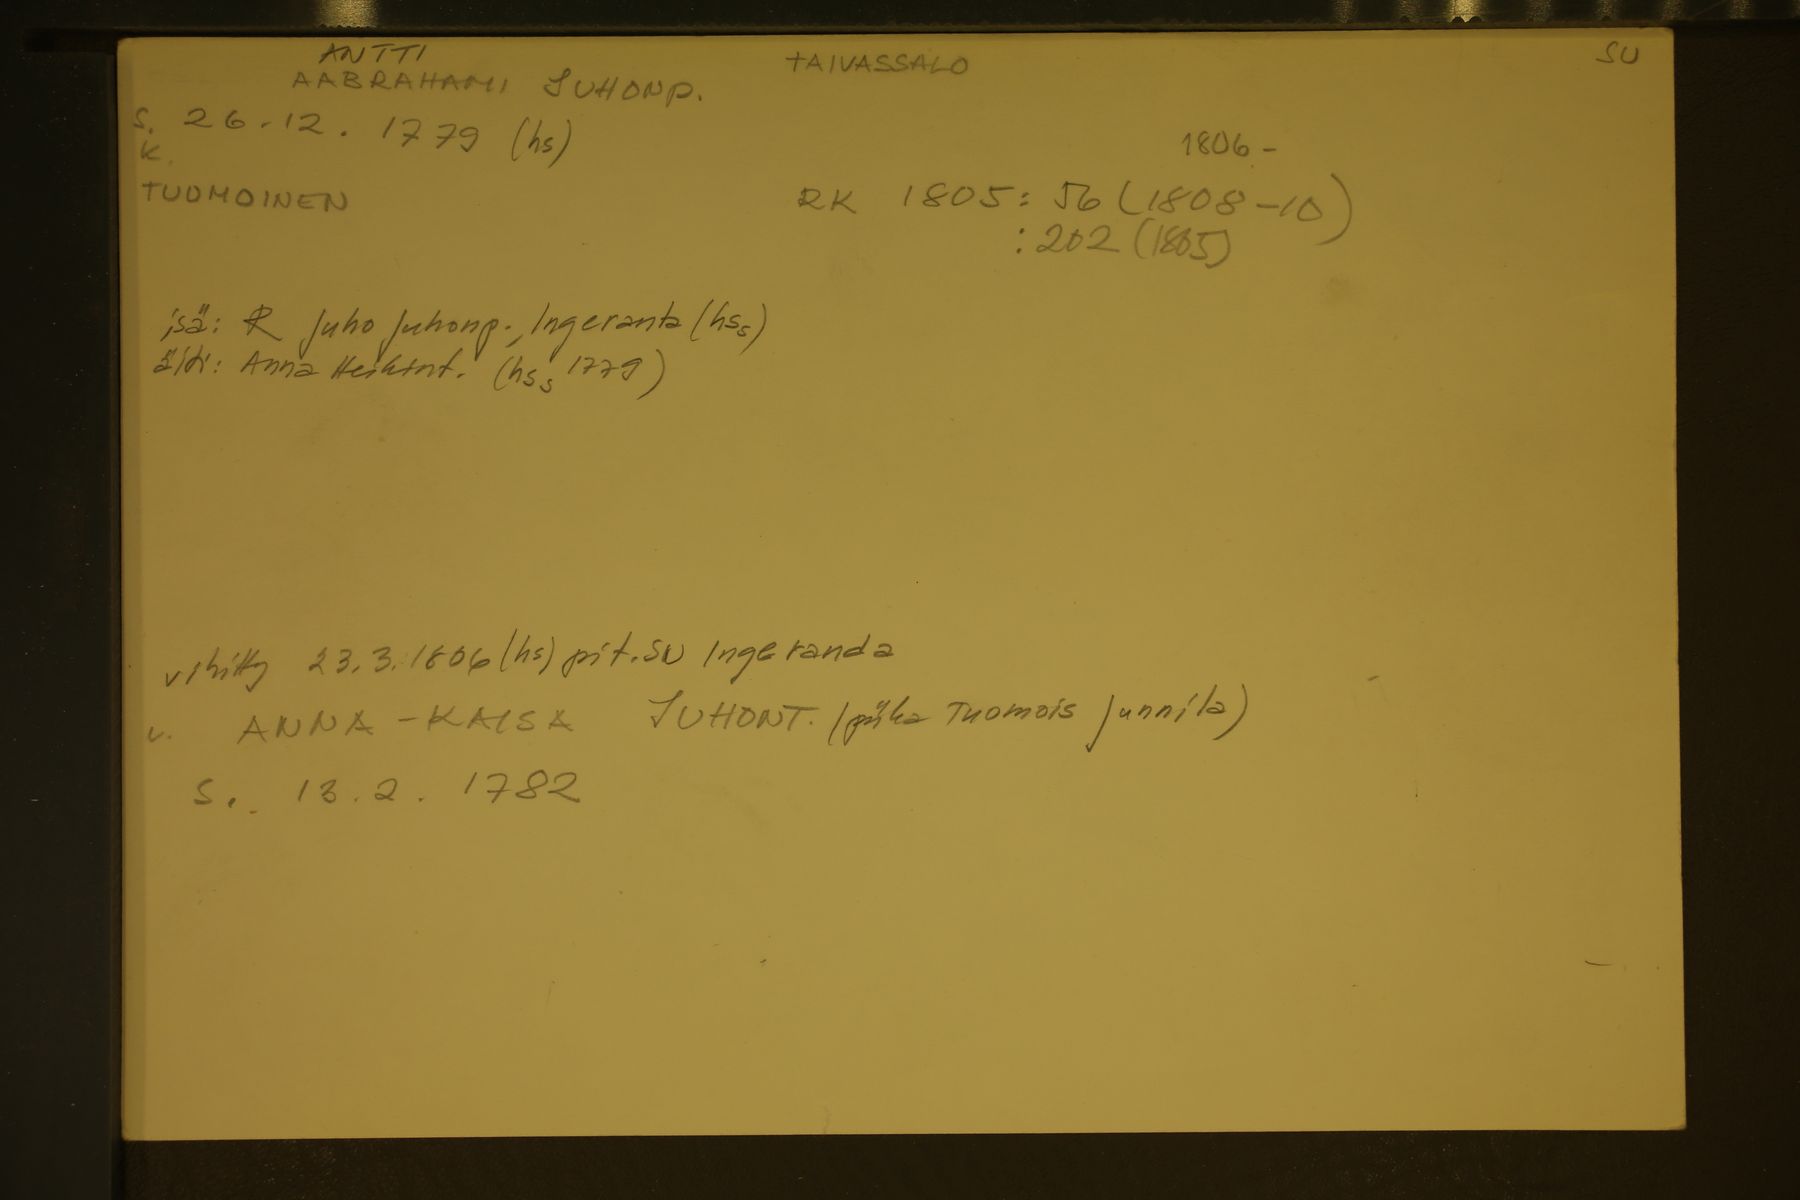 ANTTI
AABRAHAMI JUHONP. TAIVASSALO SU
s. 26.12.1779 (hs)
k.
1806-
TUOMOINEN RK 1805: 56 (1808-10)
:202 (1805)
isä: R Juho Juhonp., Ingeranta (hss)
äiti: Anna Heikint. (hss 1779)
vihitty 23.3.1806 (hs) pit. SU Ingeranda
v. ANNA-KAISA JUHONT. (piika Tuomois Junnila)
s. 13.2.1782